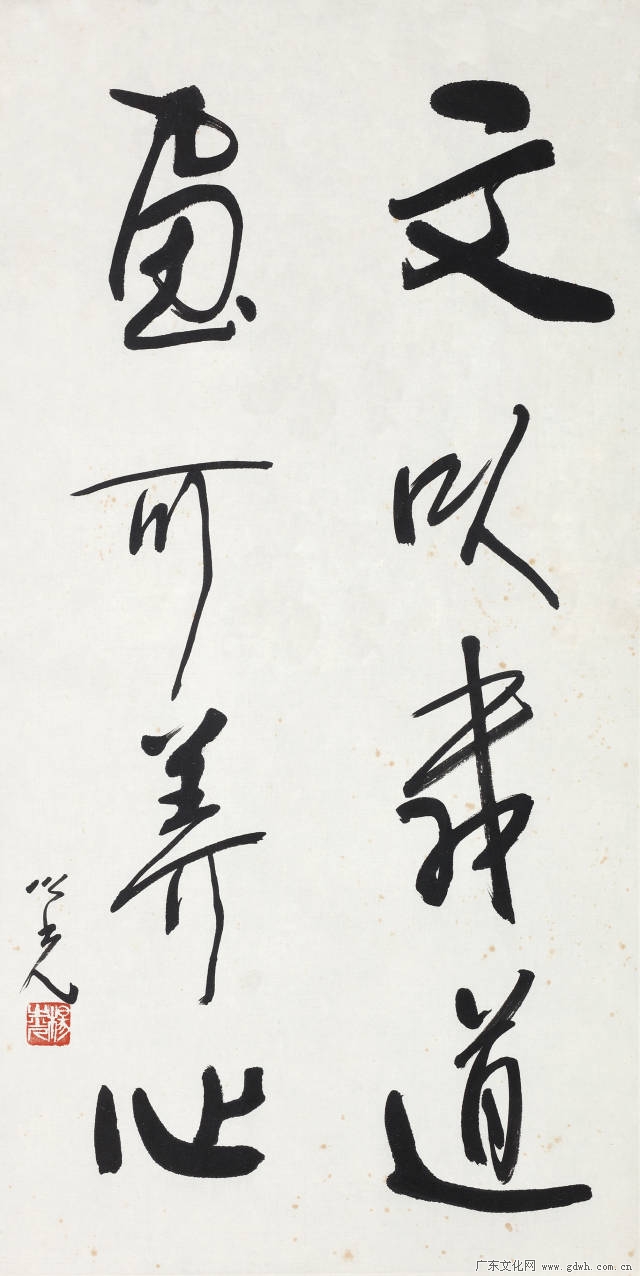 文以載道
畫可养心
之光
广东文化网 www.gdwh.com.cn